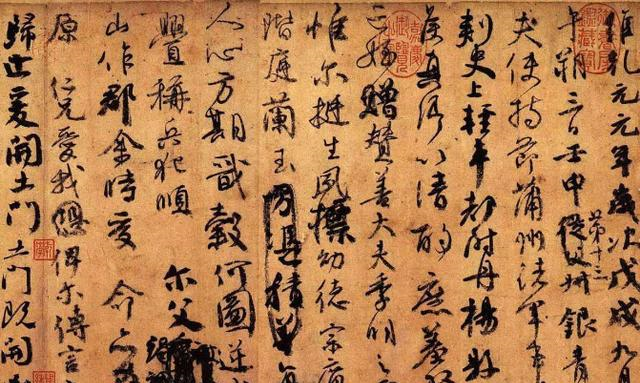 維乾元元年歲次戊戌九月
午朔三日壬申從父第十三叔銀青
夫使持節蒲州諸軍事
刺史上輕車都尉丹楊縣
侯真卿以清酌庶羞
亡姪贈贊善大夫季明之
惟爾挺生夙標幼德宗廟
階庭蘭玉方憑積善
人心方期戩穀何圖逆
釁稱兵犯順 爾父
山作郡余時受 命亦
原 仁兄愛我 俾爾傳言
歸止爰開土門土門既開